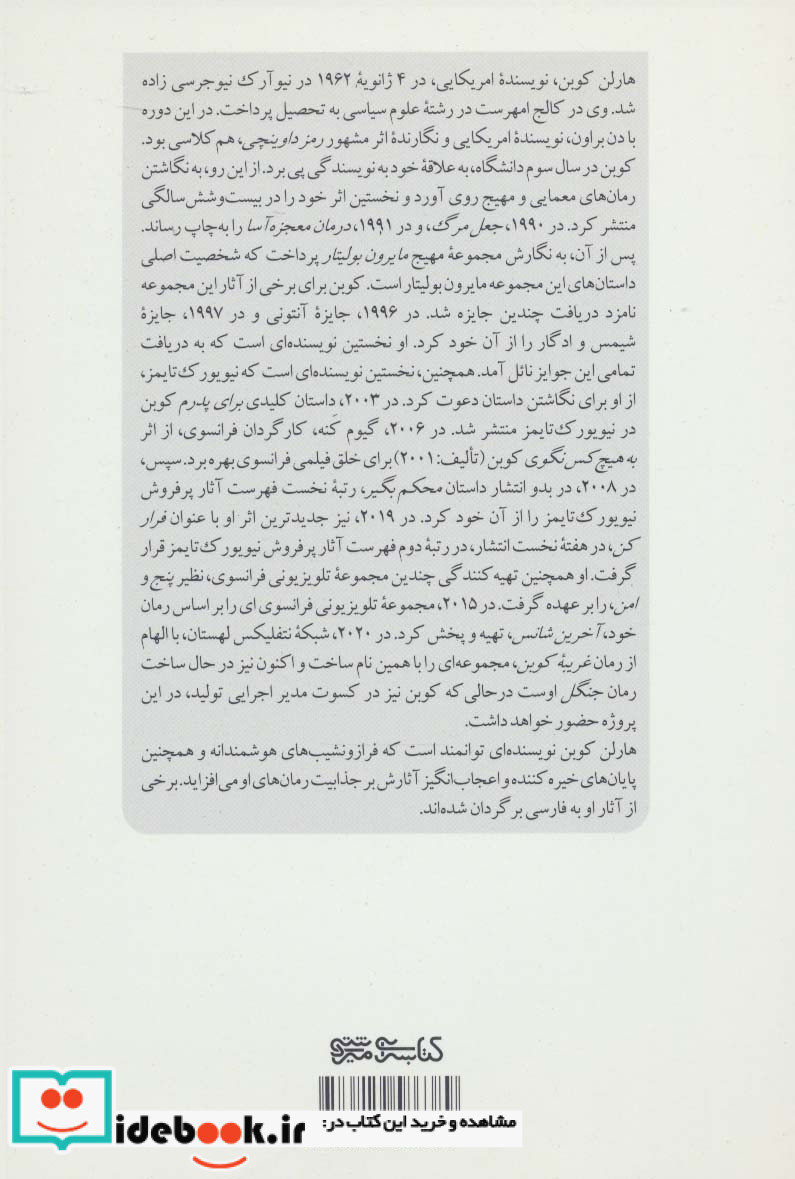 هارلن کوبن، نویسندهٔ امریکایی، در ۴ ژانویهٔ ۱۹۶۲ در نیوآرک نیوجرسی زاده
شد. وی در کالج امهرست در رشتهٔ علوم سیاسی به تحصیل پرداخت. در این دوره
با دن براون، نویسندهٔ امریکایی و نگارندهٔ اثر مشهور رمز داوینچی، هم‌کلاسی بود.
کوبن در سال سوم دانشگاه، به علاقهٔ خود به نویسندگی پی برد. از این رو، به نگاشتن
رمان‌های معمایی و مهیج روی آورد و نخستین اثر خود را در بیست‌وشش‌سالگی
منتشر کرد. در ۱۹۹۰، جعل مرگ، و در ۱۹۹۱، درمان معجزه‌آسا را به‌چاپ رساند.
پس از آن، به نگارش مجموعهٔ مهیج مایرون بولیتار پرداخت که شخصیت اصلی
داستان‌های این مجموعه مایرون بولیتار است. کوبن برای برخی از آثار این مجموعه
نامزد دریافت چندین جایزه شد. در ۱۹۹۶، جایزهٔ آنتونی و در ۱۹۹۷، جایزهٔ
شیمس و ادگار را از آن خود کرد. او نخستین نویسنده‌ای است که به دریافت
تمامی این جوایز نائل آمد. همچنین، نخستین نویسنده‌ای است که نیویورک‌تایمز،
از او برای نگاشتن داستان دعوت کرد. در ۲۰۰۳، داستان کلیدی برای پدرم کوبن
در نیویورک‌تایمز منتشر شد. در ۲۰۰۶، گیوم کَنه، کارگردان فرانسوی، از اثر
به هیچ‌کس نگوی کوبن (تألیف: ۲۰۰۱) برای خلق فیلمی فرانسوی بهره برد. سپس،
در ۲۰۰۸، در بدو انتشار داستان محکم بگیر، رتبهٔ نخست فهرست آثار پرفروش
نیویورک‌تایمز را از آن خود کرد. در ۲۰۱۹، نیز جدیدترین اثر او با عنوان فرار
کن، در هفتهٔ نخست انتشار، در رتبهٔ دوم فهرست آثار پرفروش نیویورک‌تایمز قرار
گرفت. او همچنین تهیه‌کنندگی چندین مجموعهٔ تلویزیونی فرانسوی، نظیر پنج و
امن، را بر عهده گرفت. در ۲۰۱۵، مجموعهٔ تلویزیونی فرانسوی ای را بر اساس رمان
خود، آخرین شانس، تهیه و پخش کرد. در ۲۰۲۰، شبکهٔ نتفلیکس لهستان، با الهام
از رمان غریبهٔ کوبن، مجموعه‌ای را با همین نام ساخت و اکنون نیز در حال ساخت
رمان جنگل اوست درحالی‌که کوبن نیز در کسوت مدیر اجرایی تولید، در این
پروژه حضور خواهد داشت.
هارلن کوبن نویسنده‌ای توانمند است که فرازونشیب‌های هوشمندانه و همچنین
پایان‌های خیره‌کننده و اعجاب‌انگیز آثارش بر جذابیت رمان‌های او می‌افزاید. برخی
از آثار او به فارسی برگردان شده‌اند.
کتابسرای میردشتی
مشاهده و خرید این کتاب در:
idebook.ir